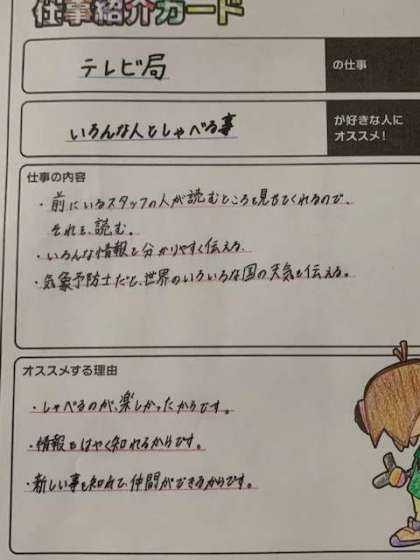 仕事紹介カード
テレビ局
の仕事
いろんな人としゃべる事
が好きな人に
オススメ!
仕事の内容
・前にいるスタッフの人が読むところを見せてくれるので、
それを、読む。
・いろんな情報を分かりやすく伝える。
・気象予防士だと、世界のいろいろな国の天気を伝える。
オススメする理由
・しゃべるのが、楽しかったからです。
・情報をはやく知れるからです。
・新しい事も知れて、仲間ができるからです。